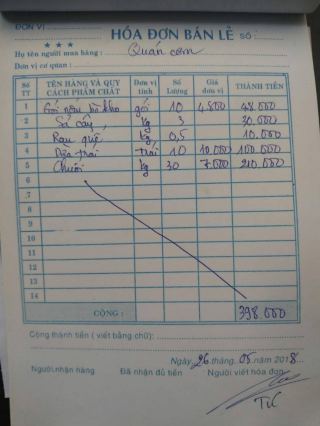 ĐƠN VỊ
HÓA ĐƠN BÁN LẺ SỐ:
★ ★ ★
Họ tên người mua hàng: Quán cơm
Đơn vị cơ quan:
Số TT TÊN HÀNG VÀ QUY CÁCH PHẨM CHẤT Đơn vị tính Số Lượng Giá đơn vị THÀNH TIỀN
1 Gói nấu bò kho gói 10 4800 48.000
2 Sả cây kg 3 30.000
3 Rau quế kg 0,5 10.000
4 Dừa trái trái 10 10000 100 000
5 Chuối kg 30 7000 210 000
6
7
8
9
10
11
12
13
14
CỘNG: 398 000
Cộng thành tiền (viết bằng chữ):
Ngày 26 tháng 05 năm 2018
Người nhận hàng Đã nhận đủ tiền Người viết hóa đơn